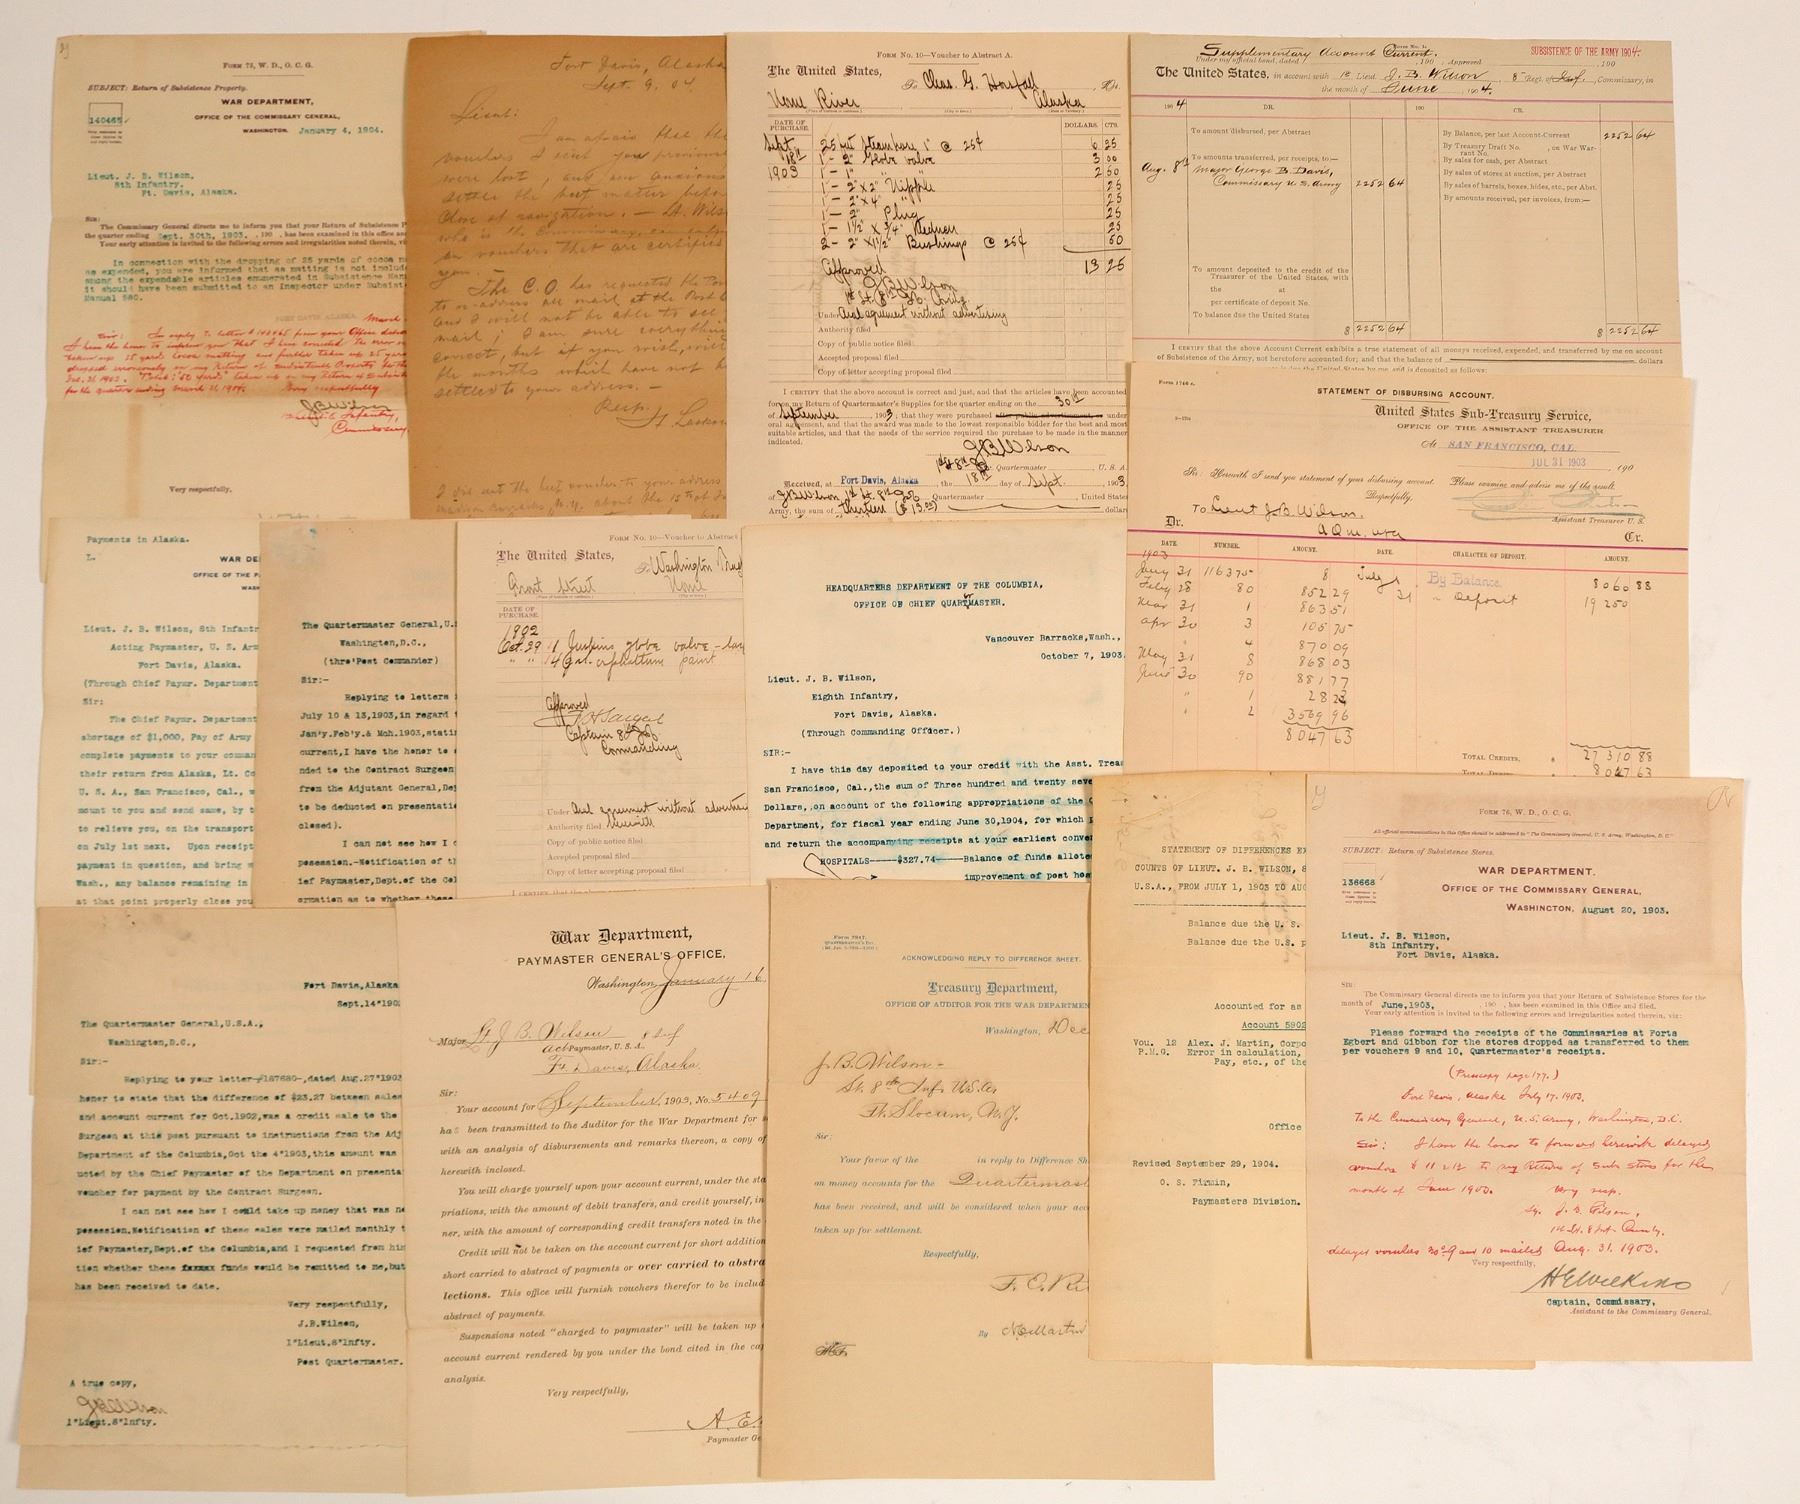 FORM 75, W. D., O. C. G.
SUBJECT: Return of Subsistence Property.
WAR DEPARTMENT,
OFFICE OF THE COMMISSARY GENERAL,
140465
WASHINGTON. January 4, 1904.
Lieut. J. B. Wilson,
8th Infantry,
Ft. Davis, Alaska.
Sir:
The Commissary General directs me to inform you that your Return of Subsistence P
the quarter ending Sept. 30th, 1903. , 190 , has been examined in this office and
Your early attention is invited to the following errors and irregularities noted therein, viz
In connection with the dropping of 25 yards of cocoa m
as expended, you are informed that as matting is not includ
among the expendable articles enumerated in Subsistence Man
it should have been submitted to an Inspector under Subsist
Manual 580.
FORT DAVIS ALASKA. March
Sir: In reply to letter # 140465 from your Office
I have the honor to inform you that I have corrected the error
taken up 25 yards Cocoa matting and further taken up 25 yards
dropped erroneously on my Return of Subsistence Property
Dec. 31 1903. Total: 50 yards taken up on my Return of Subsist
for the quarter ending March 31, 1904. Very respectfully
JBWilson
Infantry,
Commissary
Very respectfully,
Fort Davis, Alaska
Sept. 9, 04.
Lieut:
I am afraid that the
vouchers I sent you previous
were lost, and am anxious
settle the beef matter befor
close of navigation. — Lt. Wils
who is the Commissary, can
on vouchers that are certified
you. —
The C.O. has requested the Post
to re-address all mail at the Post O
and I will not be able to see
mail; I am sure everythin
correct, but if you wish, will
the months which have not b
settled to your address. —
Resp.
I did sent the beef voucher to your address
Madison Barracks, N.Y. about the 15th of
FORM NO. 10—Voucher to Abstract A.
The United States,
To Chas. G. Horsfall , Dr.
Nome River Alaska
DATE OF PURCHASE.
DOLLARS. CTS.
Sept 18th 1903
25 ft Steam hose 1" @ 25¢ 6 25
1 - 2" Globe valve 3 00
1 - 1" " " 2 50
1 - 2" x 2" Nipple 25
1 - 2" x 4" " 25
1 - 2" Plug 25
1 - 1½" x ¾" Reducer 25
2 - 2" x 1½" Bushings @ 25¢ 50
13 25
Approved
JBWilson
1st Lt. 8th Inf. Comdg.
Under Oral agreement without advertising
Authority filed
Copy of public notice filed
Accepted proposal filed
Copy of letter accepting proposal filed
I CERTIFY that the above account is correct and just, and that the articles have been accounted
for on my Return of Quartermaster's Supplies for the quarter ending on the 30th
of September , 1903; that they were purchased after public advertisement, or under
oral agreement, and that the award was made to the lowest responsible bidder for the best and most
suitable articles, and that the needs of the service required the purchase to be made in the manner
indicated.
JBWilson
1st Lt 8th Inf Quartermaster , U. S. A
Received, at Fort Davis, Alaska , the 18th day of Sept. , 1903
of JBWilson 1st Lt. 8th Inf Quartermaster , United States
Army, the sum of thirteen ($13.25) dollar
SUBSISTENCE OF THE ARMY 1904.
Supplementary Account Current.
Under my official bond, dated , 190 . Approved , 190
The United States, in account with 1st Lieut J. B. Wilson , 8th Regt. of Inf., Commissary, in
the month of June , 1904.
1904 DR. 190 CR.
To amount disbursed, per Abstract
To amounts transferred, per receipts, to:—
Aug. 8th Major George B. Davis,
Commissary U.S. Army 2252 64
To amount deposited to the credit of the
Treasurer of the United States, with
the at
per certificate of deposit No.
To balance due the United States
$ 2252 64
By Balance, per last Account-Current 2252 64
By Treasury Draft No. , on War Warrant No.
By sales for cash, per Abstract
By sales of stores at auction, per Abstract
By sales of barrels, boxes, hides, etc., per Abst.
By amounts received, per invoices, from:—
$ 2252 64
I CERTIFY that the above Account Current exhibits a true statement of all moneys received, expended, and transferred by me on account
of Subsistence of the Army, not heretofore accounted for; and that the balance of dollars
is due the United States by me, and is deposited as follows:
Form 1746 c.
STATEMENT OF DISBURSING ACCOUNT.
United States Sub-Treasury Service,
OFFICE OF THE ASSISTANT TREASURER
At SAN FRANCISCO, CAL.
JUL 31 1903 , 190
Sir: Herewith I send you statement of your disbursing account. Please examine and advise me of the result.
Respectfully,
To Lieut J.B. Wilson.
AQM USA
Assistant Treasurer U. S.
Dr. Cr.
DATE. NUMBER. AMOUNT. DATE. CHARACTER OF DEPOSIT. AMOUNT.
1903
Jany 31 116375 8 July 1 By Balance, 8060 88
Feby 28 80 852 29 31 " Deposit 19 250
Mar 31 1 863 51
Apr 30 3 105 75
" 4 870 09
May 31 8 868 03
June 30 90 881 77
" 1 28 23
" 2 3569 96
8047 63
TOTAL CREDITS, $ 27 310 88
TOTAL DEBITS, 8047 63
Payments in Alaska.
L.
WAR DE
OFFICE OF THE P
WASH
Lieut. J. B. Wilson, 8th Infantr
Acting Paymaster, U. S. Arm
Fort Davis, Alaska.
(Through Chief Paymr. Department
Sir:
The Chief Paymr. Department
shortage of $1,000, Pay of Army
complete payments to your comman
their return from Alaska, Lt. Co
U. S. A., San Francisco, Cal., w
mount to you and send same, by t
to relieve you, on the transport
on July 1st next. Upon receipt
payment in question, and bring w
Wash., any balance remaining in
at that point properly close you
The Quartermaster General,U.S
Washington,D.C.,
(thro'Post Commander)
Sir:-
Replying to letters
July 10 & 13,1903,in regard t
Jan'y.Feb'y.& Mch.1903,stati
current,I have the honor to
nded to the Contract Surgeon
from the Adjutant General,Dep
to be deducted on presentatio
closed).
I can not see how I c
posession.-Notification of th
ief Paymaster,Dept.of the Col
ormation as to whether these
FORM NO. 10—Voucher to Abstract
The United States,
To Washington Drug
Front Street Nome
DATE OF PURCHASE.
1902
Oct. 29 1 Jenkins globe valve
" " 4 Gal. asphaltum paint
Approved
Captain 8th Inf
Commanding
Under Oral agreement without advertis
Authority filed Herewith
Copy of public notice filed
Accepted proposal filed
Copy of letter accepting proposal filed
HEADQUARTERS DEPARTMENT OF THE COLUMBIA,
OFFICE OB CHIEF QUARTMASTER.
Vancouver Barracks,Wash.,
October 7, 1903.
Lieut. J. B. Wilson,
Eighth Infantry,
Fort Davis, Alaska.
(Through Commanding Officer.)
SIR:-
I have this day deposited to your credit with the Asst. Treas
San Francisco, Cal.,the sum of Three hundred and twenty seve
Dollars,,on account of the following appropriations of the Q
Department, for fiscal year ending June 30,1904, for which p
and return the accompanying receipts at your earliest conve
HOSPITALS-----$327.74-----Balance of funds allote
improvement of post hos
STATEMENT OF DIFFERENCES E
COUNTS OF LIEUT. J. B. WILSON, 8
U.S.A., FROM JULY 1, 1903 TO AUG
Balance due the U. S.
Balance due the U.S. p
Accounted for as
Account 5902
Vou. 12 Alex. J. Martin, Corpo
P.M.G. Error in calculation,
Pay, etc., of the
Office
Revised September 29, 1904.
O. S. Firmin,
Paymasters Division.
FORM 76, W. D., O. C. G.
All official communications to this Office should be addressed to "The Commissary General, U. S. Army, Washington, D. C."
SUBJECT: Return of Subsistence Stores.
WAR DEPARTMENT.
OFFICE OF THE COMMISSARY GENERAL,
136668
WASHINGTON, August 20, 1903.
Lieut. J. B. Wilson,
8th Infantry,
Fort Davis, Alaska.
SIR:
The Commissary General directs me to inform you that your Return of Subsistence Stores for the
month of June,1903. , 190 , has been examined in this Office and filed.
Your early attention is invited to the following errors and irregularities noted therein, viz:
Please forward the receipts of the Commissaries at Forts
Egbert and Gibbon for the stores dropped as transferred to them
per vouchers 9 and 10, Quartermaster's receipts.
(Presscopy page 177.)
Fort Davis, Alaska July 17. 1903.
To the Commissary General, U.S. Army, Washington, D.C.
Sir: I have the honor to forward herewith delayed
vouchers # 11 & 12 to my Return of Sub Stores for the
month of June 1903.
Very resp.
Sg. J. B. Wilson,
1st Lt. 8 Inf. Comsy.
delayed vouchers Nos 9 and 10 mailed Aug. 31. 1903.
Very respectfully,
HEWilkins
Captain, Commissary,
Assistant to the Commissary General.
Fort Davis,Alaska
Sept.14"190
The Quartermaster General,U.S.A.,
Washington,D.C.,
Sir:-
Replying to your letter-#187680-,dated Aug.27"1903
honor to state that the difference of $23.27 between sales
and account current for Oct.1902,was a credit sale to the
Surgeon at this post pursuant to instructions from the Adj
Department of the Columbia,Oct the 4"1903,this amount was
ucted by the Chief Paymaster of the Department on presenta
voucher for payment by the Contract Surgeon.
I can not see how I could take up money that was ne
posession.Notification of these sales were mailed monthly t
ief Paymaster,Dept.of the Columbia,and I requested from him
tion whether these funds would be remitted to me,but
has been received to date.
Very respectfully,
J.B.Wilson,
1"Lieut.8"Infty.
Post Quartermaster.
A true copy,
JBWilson
1"Lieut.8"Infty.
War Department,
PAYMASTER GENERAL'S OFFICE,
Washington, January 16
Major Lt J B Wilson 8 Inf
Act Paymaster, U. S. A.
Ft. Davis, Alaska.
Sir:
Your account for September, 1903, No. 5409
has been transmitted to the Auditor for the War Department for s
with an analysis of disbursements and remarks thereon, a copy of
herewith inclosed.
You will charge yourself upon your account current, under the sta
priations, with the amount of debit transfers, and credit yourself, in
ner, with the amount of corresponding credit transfers noted in the
Credit will not be taken on the account current for short addition
short carried to abstract of payments or over carried to abstra
lections. This office will furnish vouchers therefor to be includ
abstract of payments.
Suspensions noted "charged to paymaster" will be taken up
account current rendered by you under the bond cited in the ca
analysis.
Very respectfully,
Paymaster Ge
Form 7847.
ACKNOWLEDGING REPLY TO DIFFERENCE SHEET.
Treasury Department,
OFFICE OF AUDITOR FOR THE WAR DEPARTMEN
Washington, Dec
J. B. Wilson -
Lt. 8th Inf. U.S.A.
Ft. Slocum, N.Y.
Sir:
Your favor of the in reply to Difference Sh
on money accounts for the Quartermast
has been received, and will be considered when your acc
taken up for settlement.
Respectfully,
By